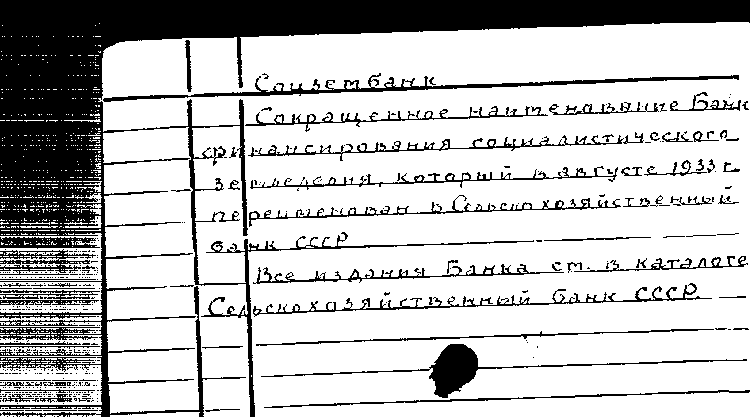 Соцзембанк
Сокращенное наименование Банк
финансирования социалистического
земледелия, который в августе 1933 г.
переименован в Сельскохозяйственный
банк СССР
Все издания Банка см. в каталоге
Сельскохозяйственный банк СССР.